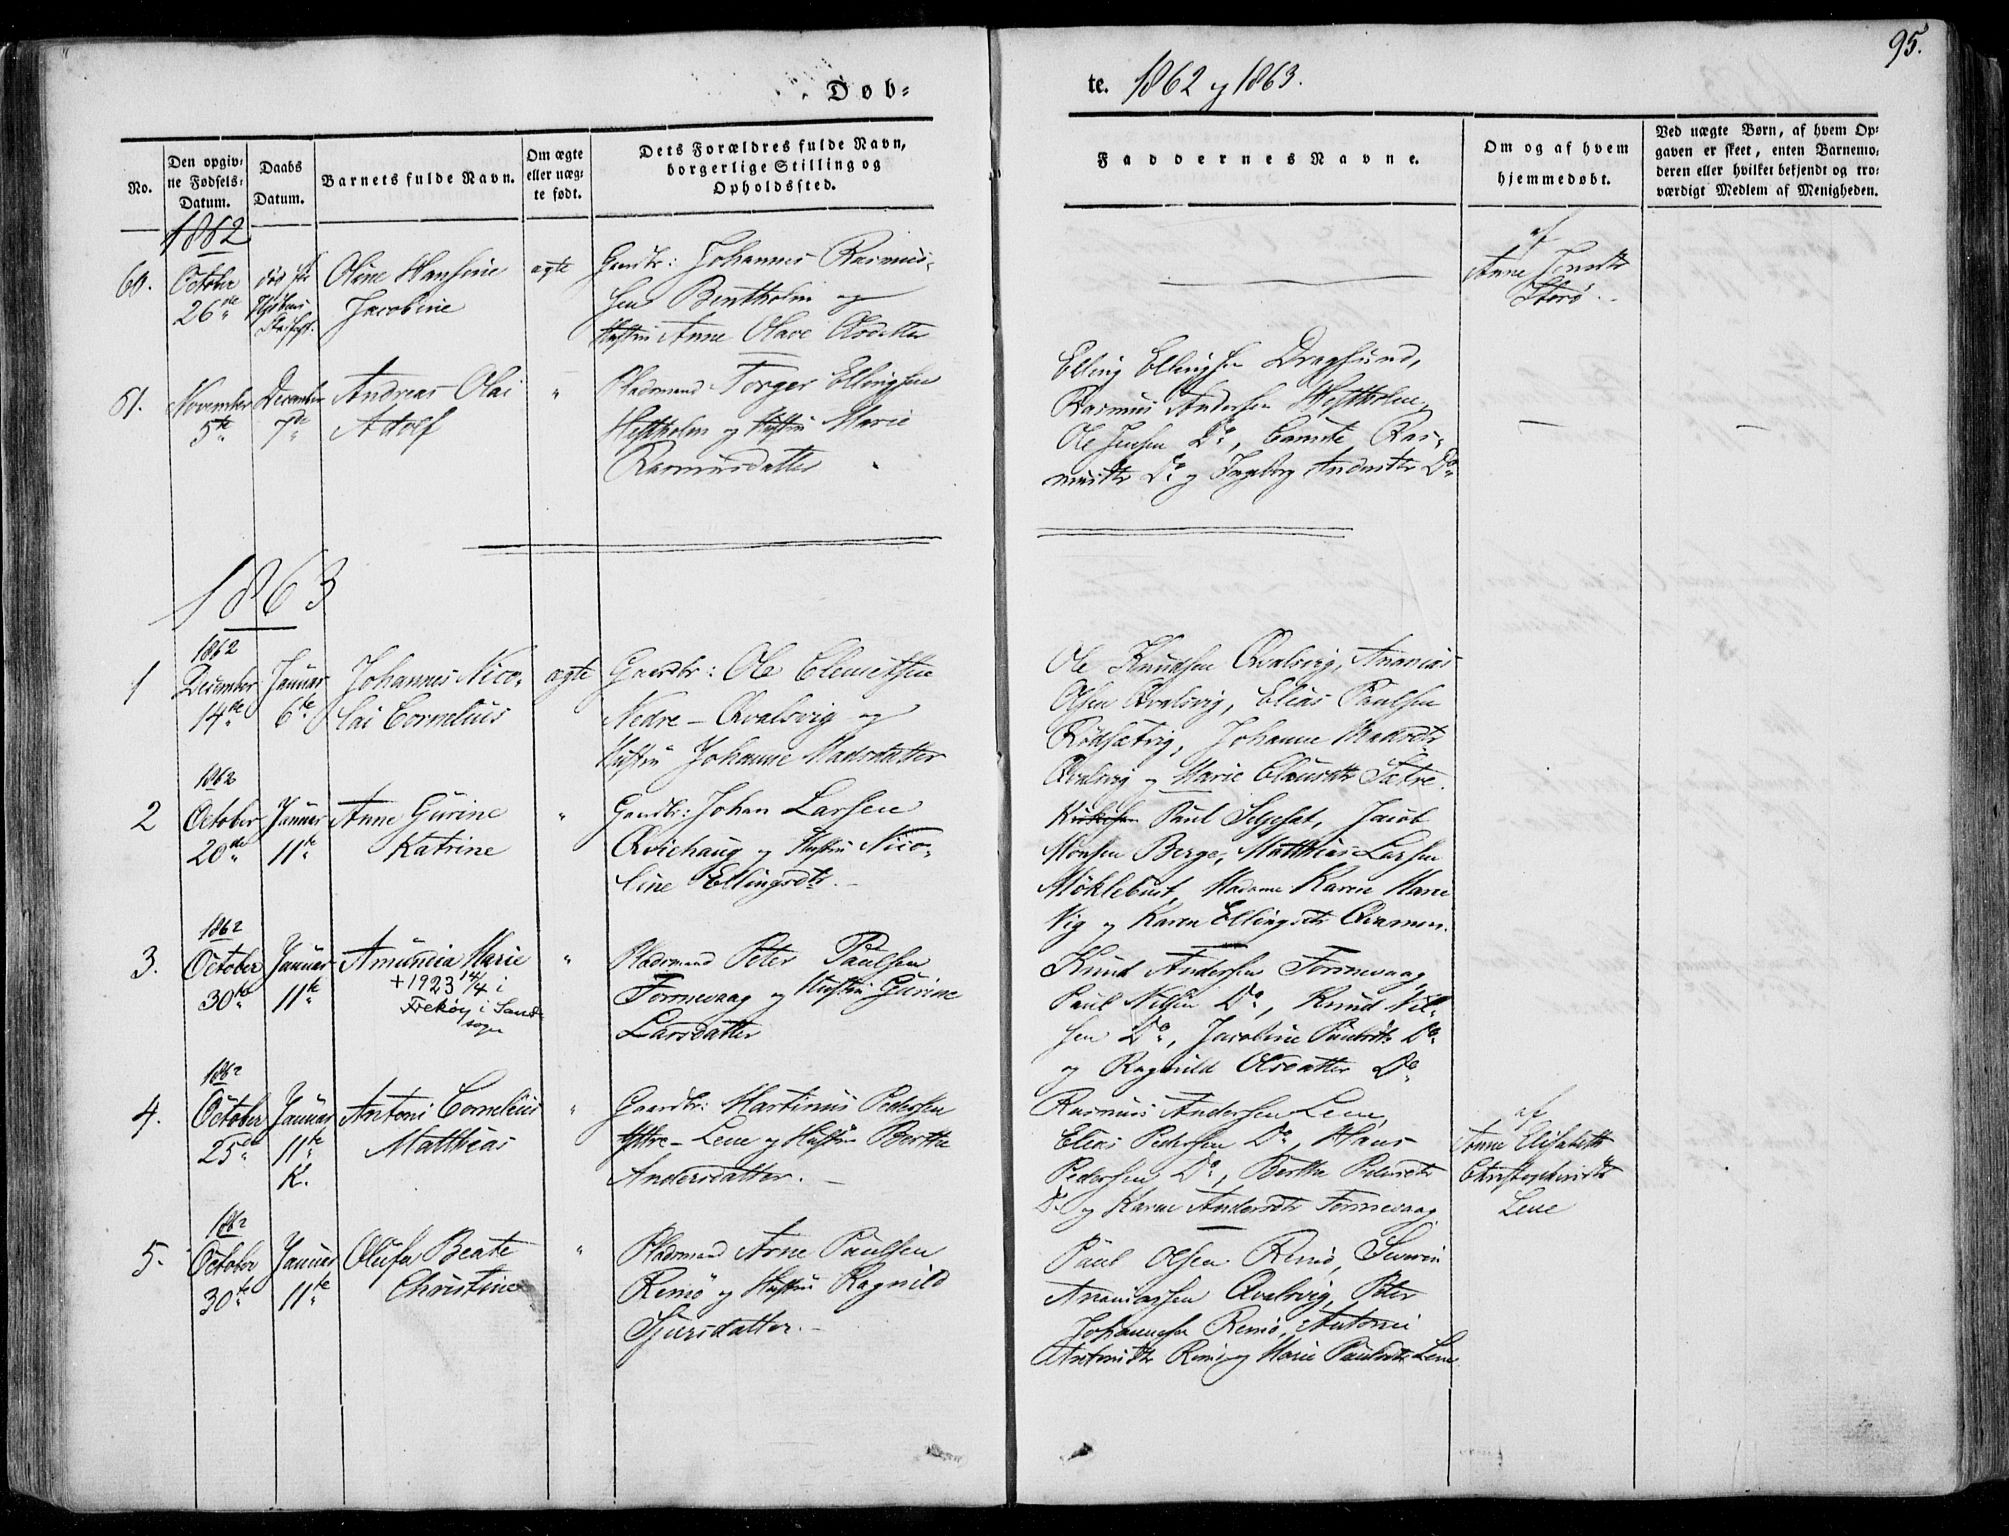 95.
Døb=
te. 1862 og 1863.
No.
Den opgiv=
ne Fødsels=
Datum.
Daabs
Datum.
Barnets fulde Navn.
Om ægte
eller uæg=
te født.
Dets Forældres fulde Navn,
borgerlige Stilling og
Opholdssted.
Faddernes Navne.
Om og af hvem
hjemmedøbt.
Ved uægte Børn, af hvem Op=
gaven er skeet, enten Barnemo=
deren eller hvilket bekjendt og tro=
værdigt Medlem af Menigheden.
1862
60.
October
26de
død før
Oline Hansine
Jacobine
ægte
Gaardbr: Johannes Rasmus=
sen Bentholm og
Hustru Anne Olave Olsdatter
af
Anne
Storø.
61.
November
5te
December
7de
Andreas Olai
Adolf
"
Pladsmand Torger Ellingsen
Hestholm og Hustru Marie
Rasmusdatter
Elling Ellingsen Dragsund,
Rasmus Andersen Hestholm,
Ole Jensen Do, Ras=
musdtr Do og Ingeborg Andersdtr Do
1863
1
1862
December
14de
Januar
6te
Johannes Nico=
lai Cornelius
ægte
Gaardbr: Ole Clemetsen
Nedre-Qvalsvig og
Hustru Johanne Madsdatter
Ole Knudsen Qvalsvig, Ananias
Olsen Qvalsvig, Elias Paulsen
Rødsætvig, Johanne Madsdtr
Qvalsvig og Marie Clausdtr Sætre.
2
1862
October
20de
Januar
11te
Anne Gurine
Katrine
"
Gaardbr: Johan Larsen
Qviehaug og Hustru Nico=
line Ellingsdtr.
Paul Seljeset, Jacob
Monsen Berge, Matthias Larsen
Møklebust, Madame Karen Marie
Vig og Karen Ellingsdtr Qvammen.
3.
1862
October
30te
Januar
11te
Amunia Marie
+1923 14/4 i
Frekøy i Sand=
sogn
"
Pladsmand Peter Paulsen
Torvevaag og Hustru Gurine
Larsdatter
Knud Andersen Torvevaag,
Paul Nilsen Do, Knud Nil=
sen Do, Jacobine Paulsdtr Do
og Ragnild Olsdatter Do
4.
1862
October
25de
Januar
11te
K.
Antoni Cornelius
Matthias
"
Gaardbr: Martinus Pedersen
Leine og Hustru Berthe
Andersdatter.
Rasmus Andersen Leine,
Elias Pedersen Do, Hans
Pedersen Do, Berthe Pedersdtr
Do og Karen Andersdtr Torvevaag
af
Anne Elisabeth
Christophersdtr
Leine
5.
1862
October
30te
Januar
11te
Olufa Beate
Christine
"
Pladsmand Arne Paulsen
Remø og Hustru Ragnild
Sjursdatter.
Paul Olsen Remø, Severin
Ananiassen Qvalsvig, Peter
Johannesen Remø, Antonei
Antonidtr Remø og Marie Paulsdtr Leine